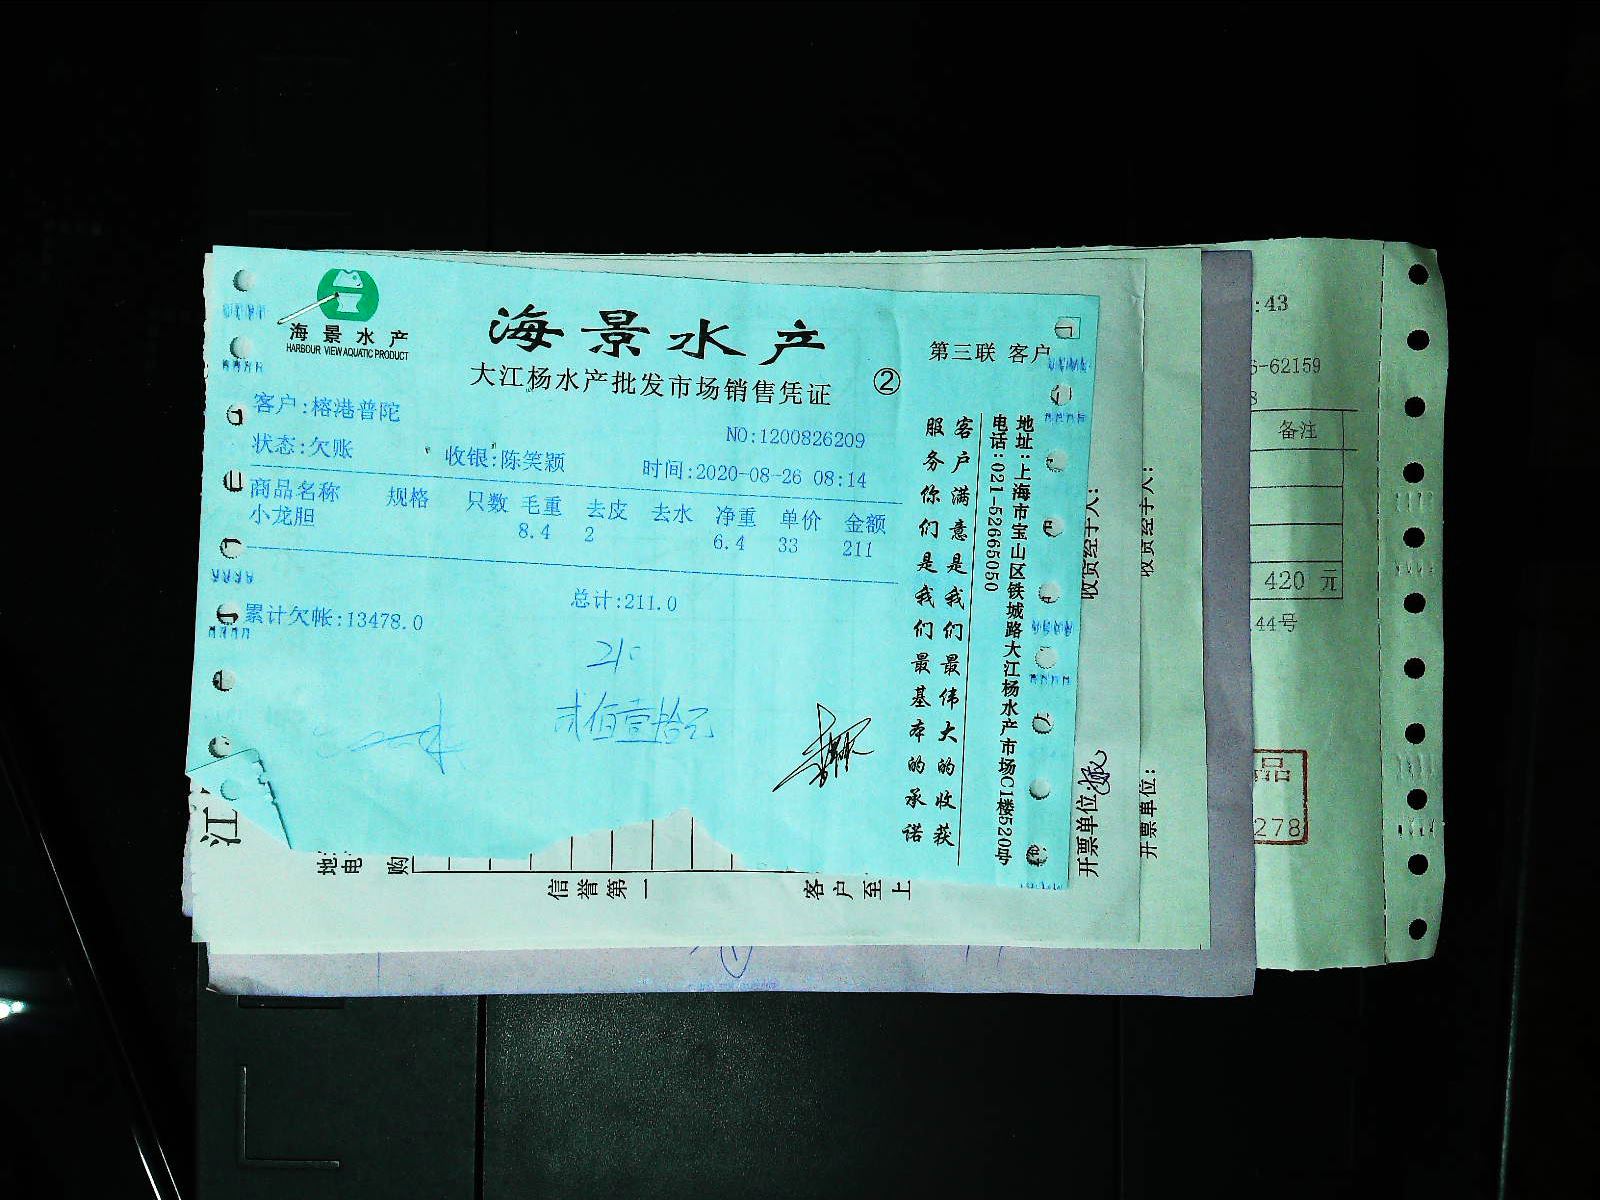 海景水产
HARBOUR VIEW AQUATIC PRODUCT
海景水产
大江杨水产批发市场销售凭证
②
第三联 客户
客户:榕港普陀
NO:1200826209
状态:欠账
收银:陈笑颖
时间:2020-08-26 08:14
商品名称 规格 只数 毛重 去皮 去水 净重 单价 金额
小龙胆 8.4 2 6.4 33 211
总计:211.0
累计欠帐:13478.0
210
贰佰壹拾元
地址:上海市宝山区铁城路大江杨水产市场C1楼520号
电话:021-52665050
客户满意是我们最伟大的收获
服务你们是我们最基本的承诺
江
地
电
购
信誉第一
客户至上
收货经手人:
开票单位:
收货经手人:
开票单位:
:43
6-62159
8
备注
420 元
44号
品
278